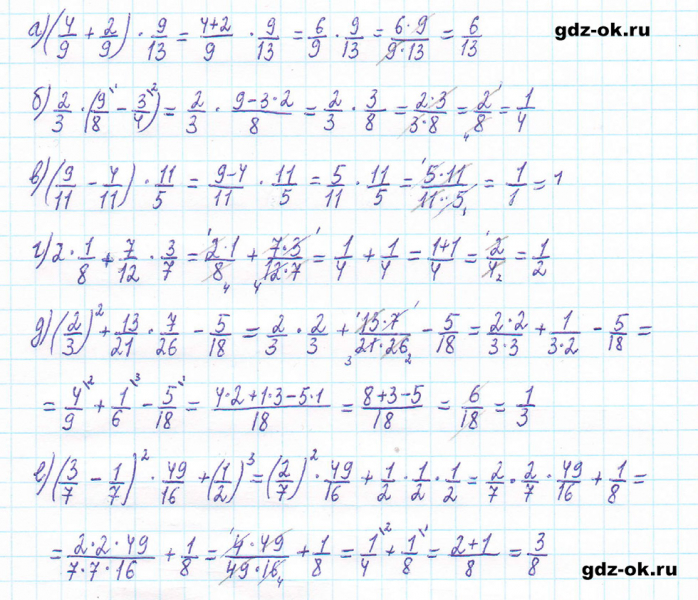 gdz-ok.ru
а) (4/9 + 2/9) · 9/13 = (4+2)/9 · 9/13 = 6/9 · 9/13 = (6·9)/(9·13) = 6/13
б) 2/3 · (9/8 \1 - 3/4 \2) = 2/3 · (9-3·2)/8 = 2/3 · 3/8 = (2·3)/(3·8) = 2/8 = 1/4
в) (9/11 - 4/11) · 11/5 = (9-4)/11 · 11/5 = 5/11 · 11/5 = (5·11)/(11·5) = 1/1 = 1
г) 2 · 1/8 + 7/12 · 3/7 = (2·1)/8 + (7·3)/(12·7) = 1/4 + 1/4 = (1+1)/4 = 2/4 = 1/2
д) (2/3)² + 13/21 · 7/26 - 5/18 = 2/3 · 2/3 + (13·7)/(21·26) - 5/18 = (2·2)/(3·3) + 1/(3·2) - 5/18 =
= 4/9 \2 + 1/6 \3 - 5/18 \1 = (4·2+1·3-5·1)/18 = (8+3-5)/18 = 6/18 = 1/3
е) (3/7 - 1/7)² · 49/16 + (1/2)³ = (2/7)² · 49/16 + 1/2 · 1/2 · 1/2 = 2/7 · 2/7 · 49/16 + 1/8 =
= (2·2·49)/(7·7·16) + 1/8 = (4·49)/(49·16) + 1/8 = 1/4 \2 + 1/8 \1 = (2+1)/8 = 3/8
gdz-ok.ru